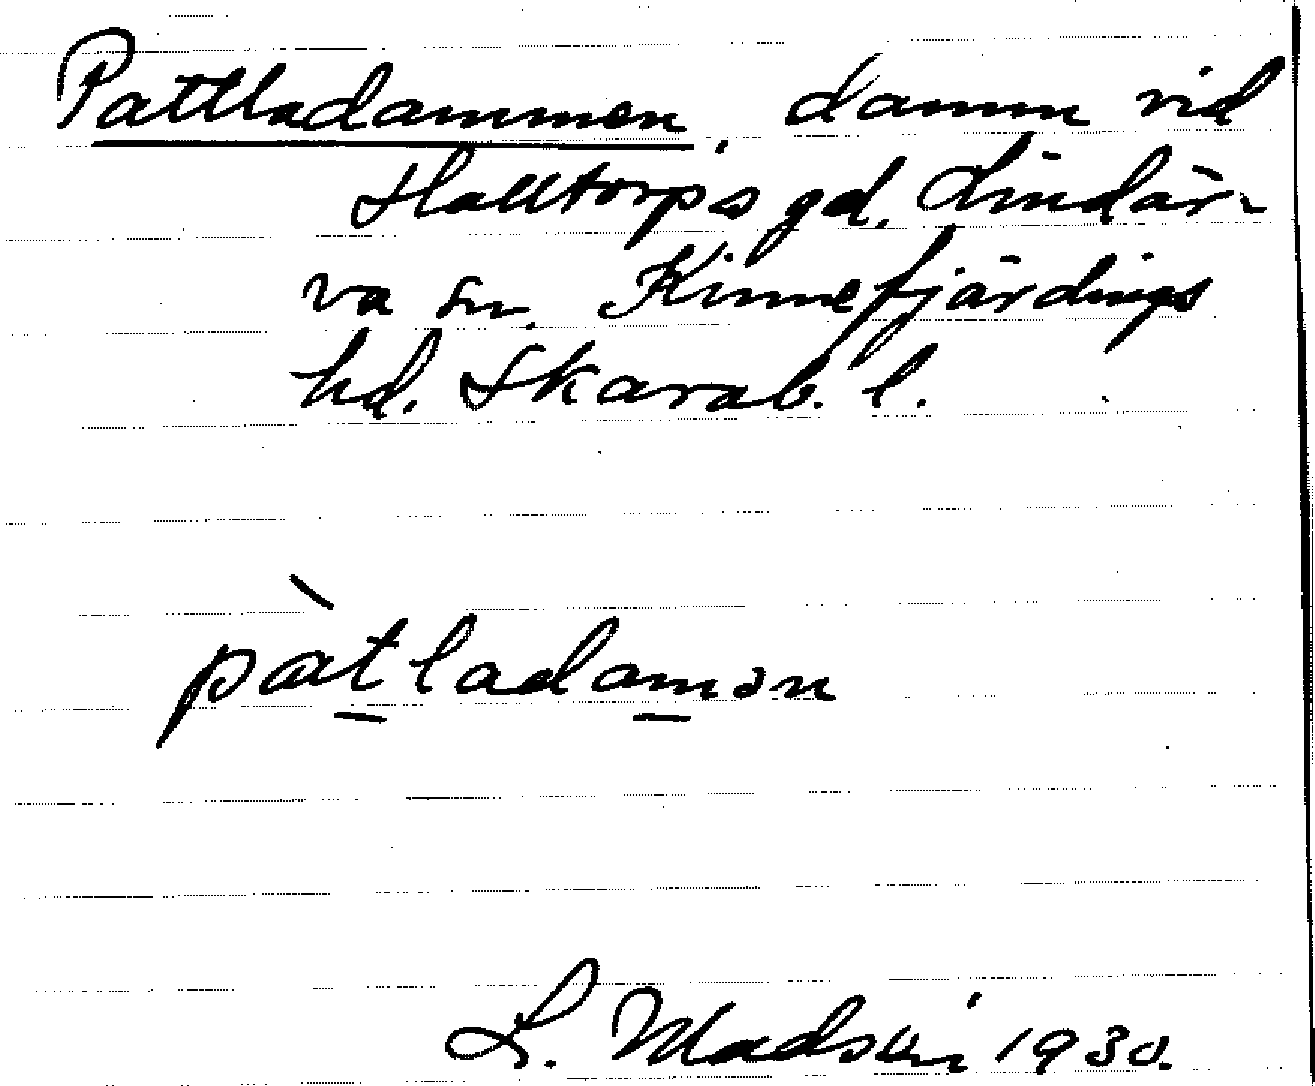 Pattladammen, damm vid
Halltorps gd, Lindär-
va sn. Kinnefjärdings
hd. Skarab. l.
pàtladamən
L. 1930.